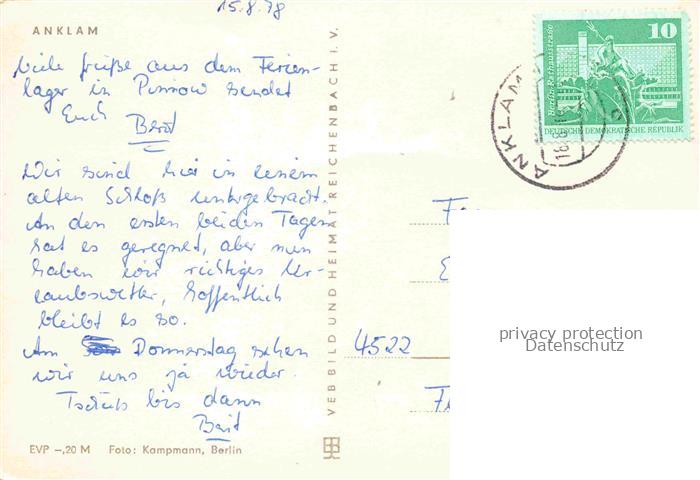 15.8.78
ANKLAM
Viele Grüße aus dem Ferien-
lager in Pinnow sendet
Euch
Wir sind hier in einem
alten Schloß untergebracht.
An den ersten beiden Tagen
hat es geregnet, aber nun
haben wir richtiges Ur-
laubswetter, hoffentlich
bleibt es so.
Am Donnerstag sehen
wir uns ja wieder.
Tschüß bis dann
EVP –,20 M Foto: Kampmann, Berlin
VEB BILD UND HEIMAT REICHENBACH I. V.
10
Berlin-Rathausstraße
DEUTSCHE DEMOKRATISCHE REPUBLIK
ANKLAM
4522
privacy protection
Datenschutz